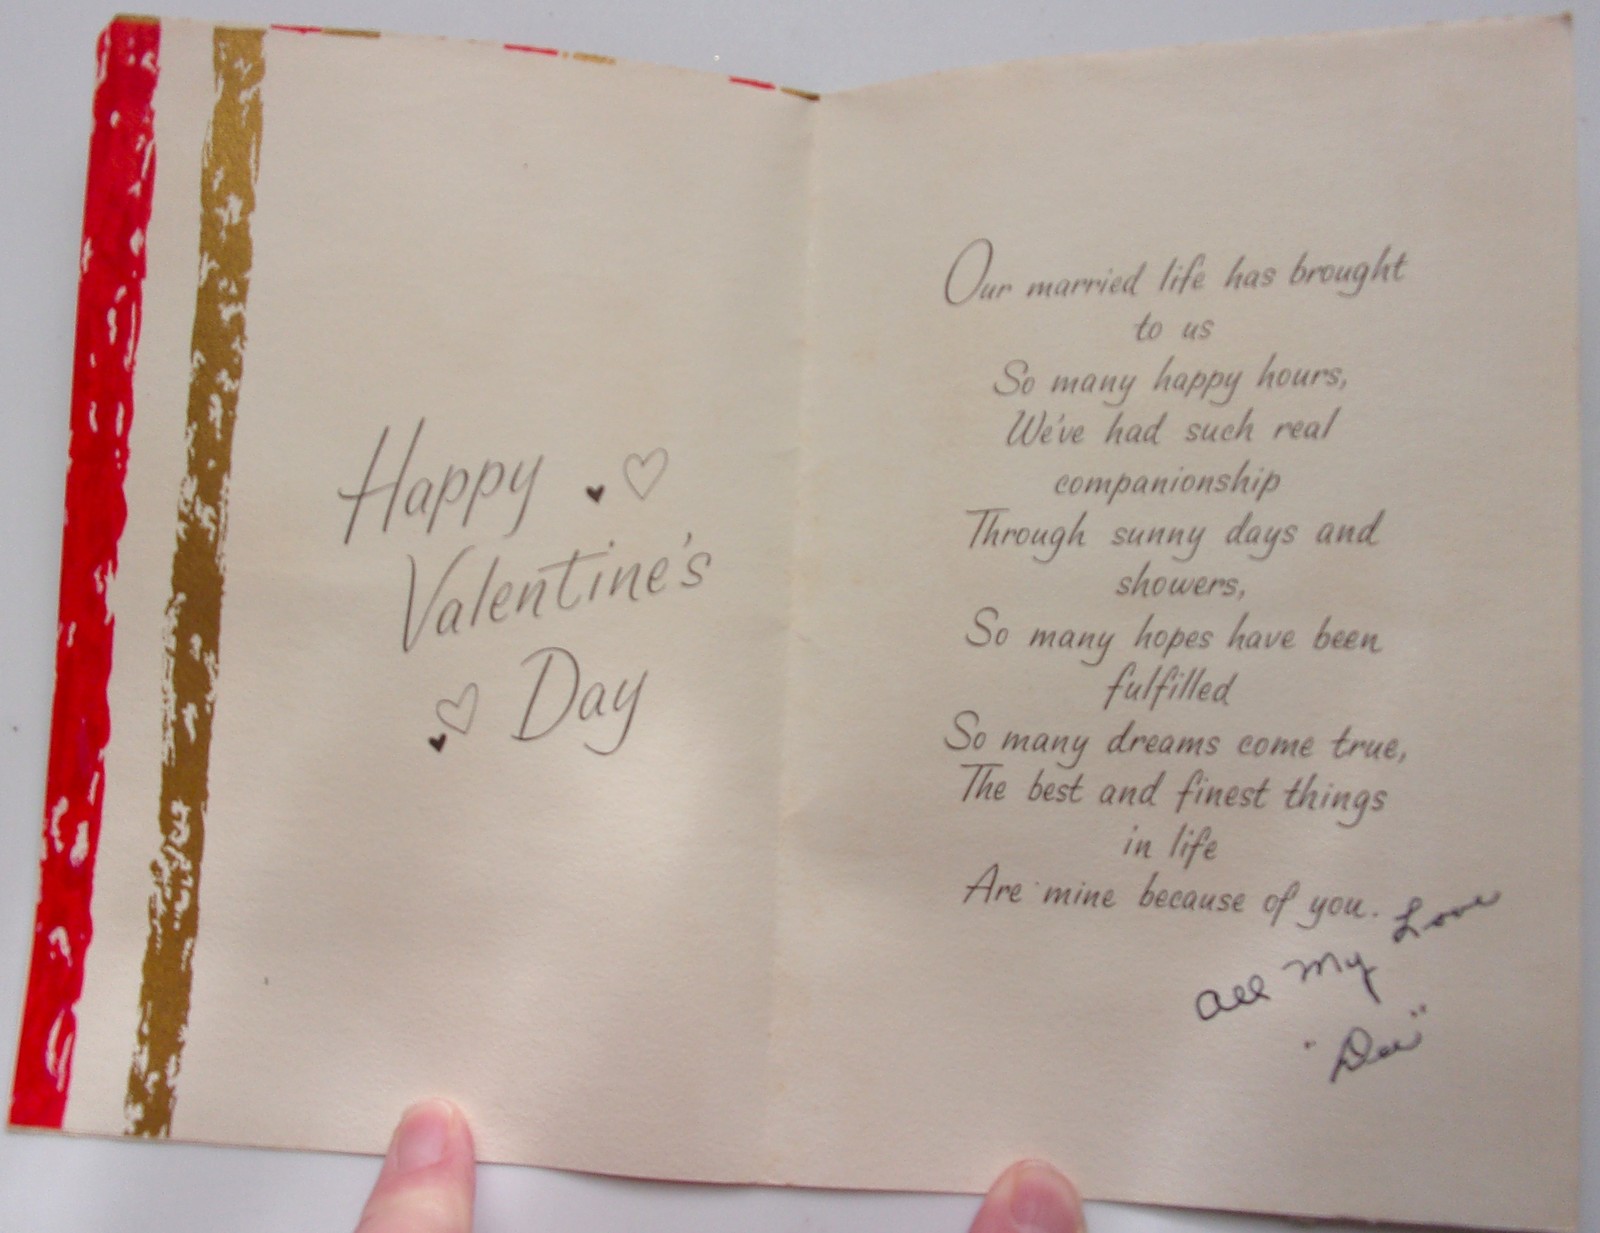 Happy
Valentine's
Day
Our married life has brought
to us
So many happy hours,
We've had such real
companionship
Through sunny days and
showers,
So many hopes have been
fulfilled
So many dreams come true,
The best and finest things
in life
Are mine because of you.
All My Love
"Dee"